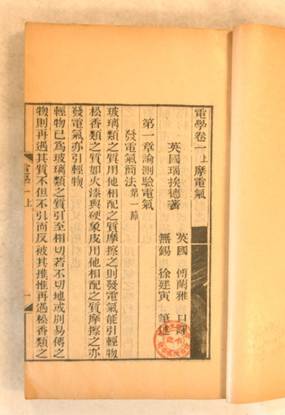 電學卷一上 摩電氣
英國 瑙挨德 著
英國 傅蘭雅 口譯
無錫 徐建寅 筆述
第一章論測驗電氣
發電氣簡法 第一節
玻璃類之質用他相配之質摩擦之則發電氣能引輕物
松香類之質如火漆與硬象皮用他相配之質摩擦之亦
發電氣亦引輕物
輕物已為玻璃類之質引至相切若不切地或別易傳之
物則再遇其質不但不引而反被其推惟再遇松香類之